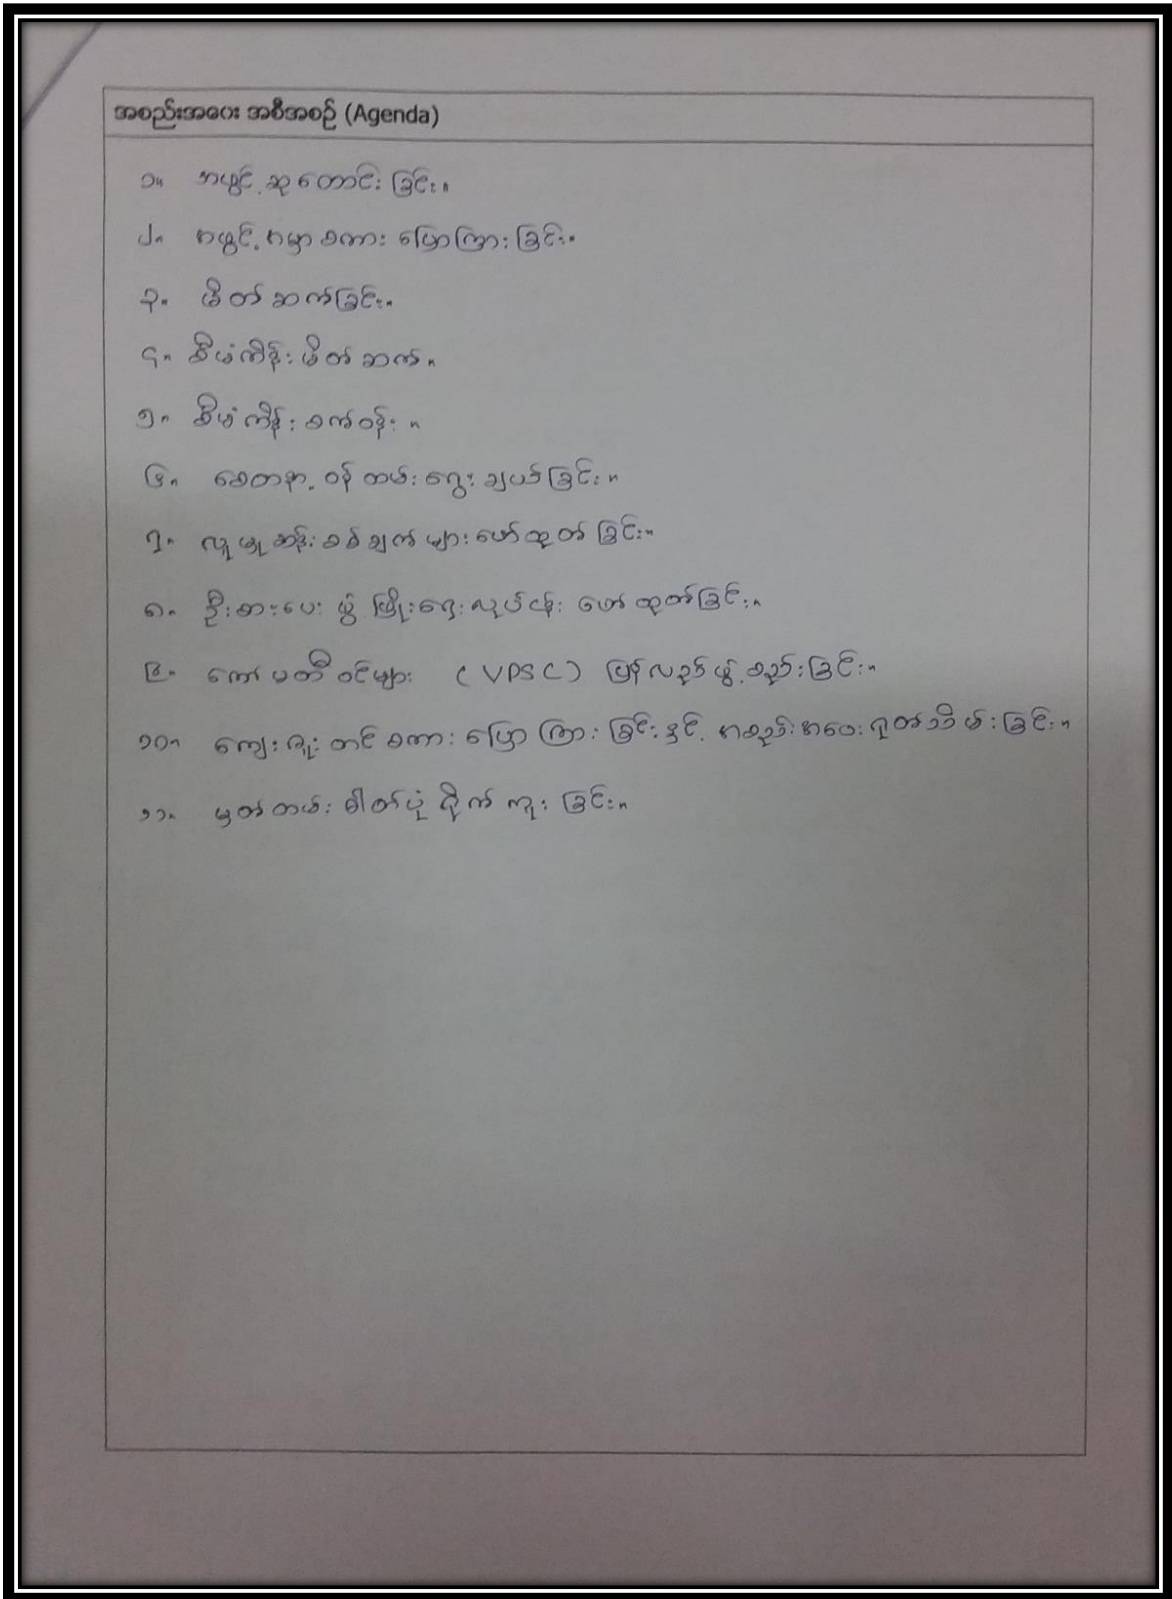 အစည်းအဝေး အစီအစဉ် (Agenda)
၁။ အဖွင့်ဆုတောင်းခြင်း။
၂။ အဖွင့်အမှာစကားပြောကြားခြင်း။
၃။ မိတ်ဆက်ခြင်း။
၄။ စီမံကိန်းမိတ်ဆက်။
၅။ စီမံကိန်းစက်ဝန်း။
၆။ စေတနာ့ဝန်ထမ်းရွေးချယ်ခြင်း။
၇။ လူမှုဆန်းစစ်ချက်များဖော်ထုတ်ခြင်း။
၈။ ဦးစားပေးဖွံ့ဖြိုးရေးလုပ်ငန်းဖော်ထုတ်ခြင်း။
၉။ ကော်မတီဝင်များ (VPSC) ပြန်လည်ဖွဲ့စည်းခြင်း။
၁၀။ ကျေးဇူးတင်စကားပြောကြားခြင်းနှင့် အစည်းအဝေးရုတ်သိမ်းခြင်း။
၁၁။ မှတ်တမ်းဓါတ်ပုံရိုက်ကူးခြင်း။